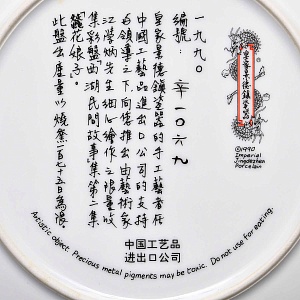 一九九〇
編號： 辛一〇六九
皇家景德鎮瓷器的手工藝者在
中國工藝品進出口公司的支持
與領導之下向您推出由藝術家
集彩盤西湖民間故事集第二集
此盤出產量以燒窯一百七十五日為限
皇家景德鎮瓷器
©1990
Imperial
Jingdezhen
Porcelain
中国工艺品
进出口公司
Artistic object. Precious metal pigments may be toxic. Do not use for eating.